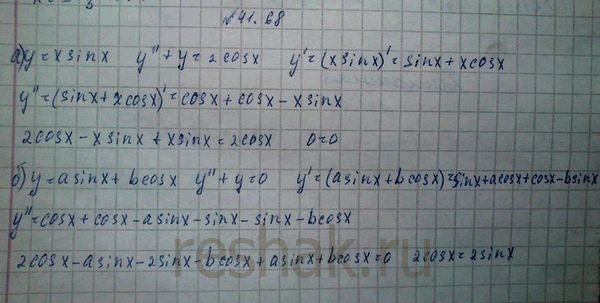 №41.68
а) y = x sinx   y'' + y = 2cosx   y' = (x sinx)' = sinx + x cosx
y'' = (sinx + x cosx)' = cosx + cosx - x sinx
2cosx - x sinx + x sinx = 2cosx   0=0
б) y = a sinx + b cosx   y'' + y = 0   y' = (a sinx + b cosx) = sinx + a cosx + cosx - b sinx
y'' = cosx + cosx - a sinx - sinx - sinx - b cosx
2cosx - a sinx - 2sinx - b cosx + a sinx + b cosx = 0   2cosx = 2sinx
reshak.ru